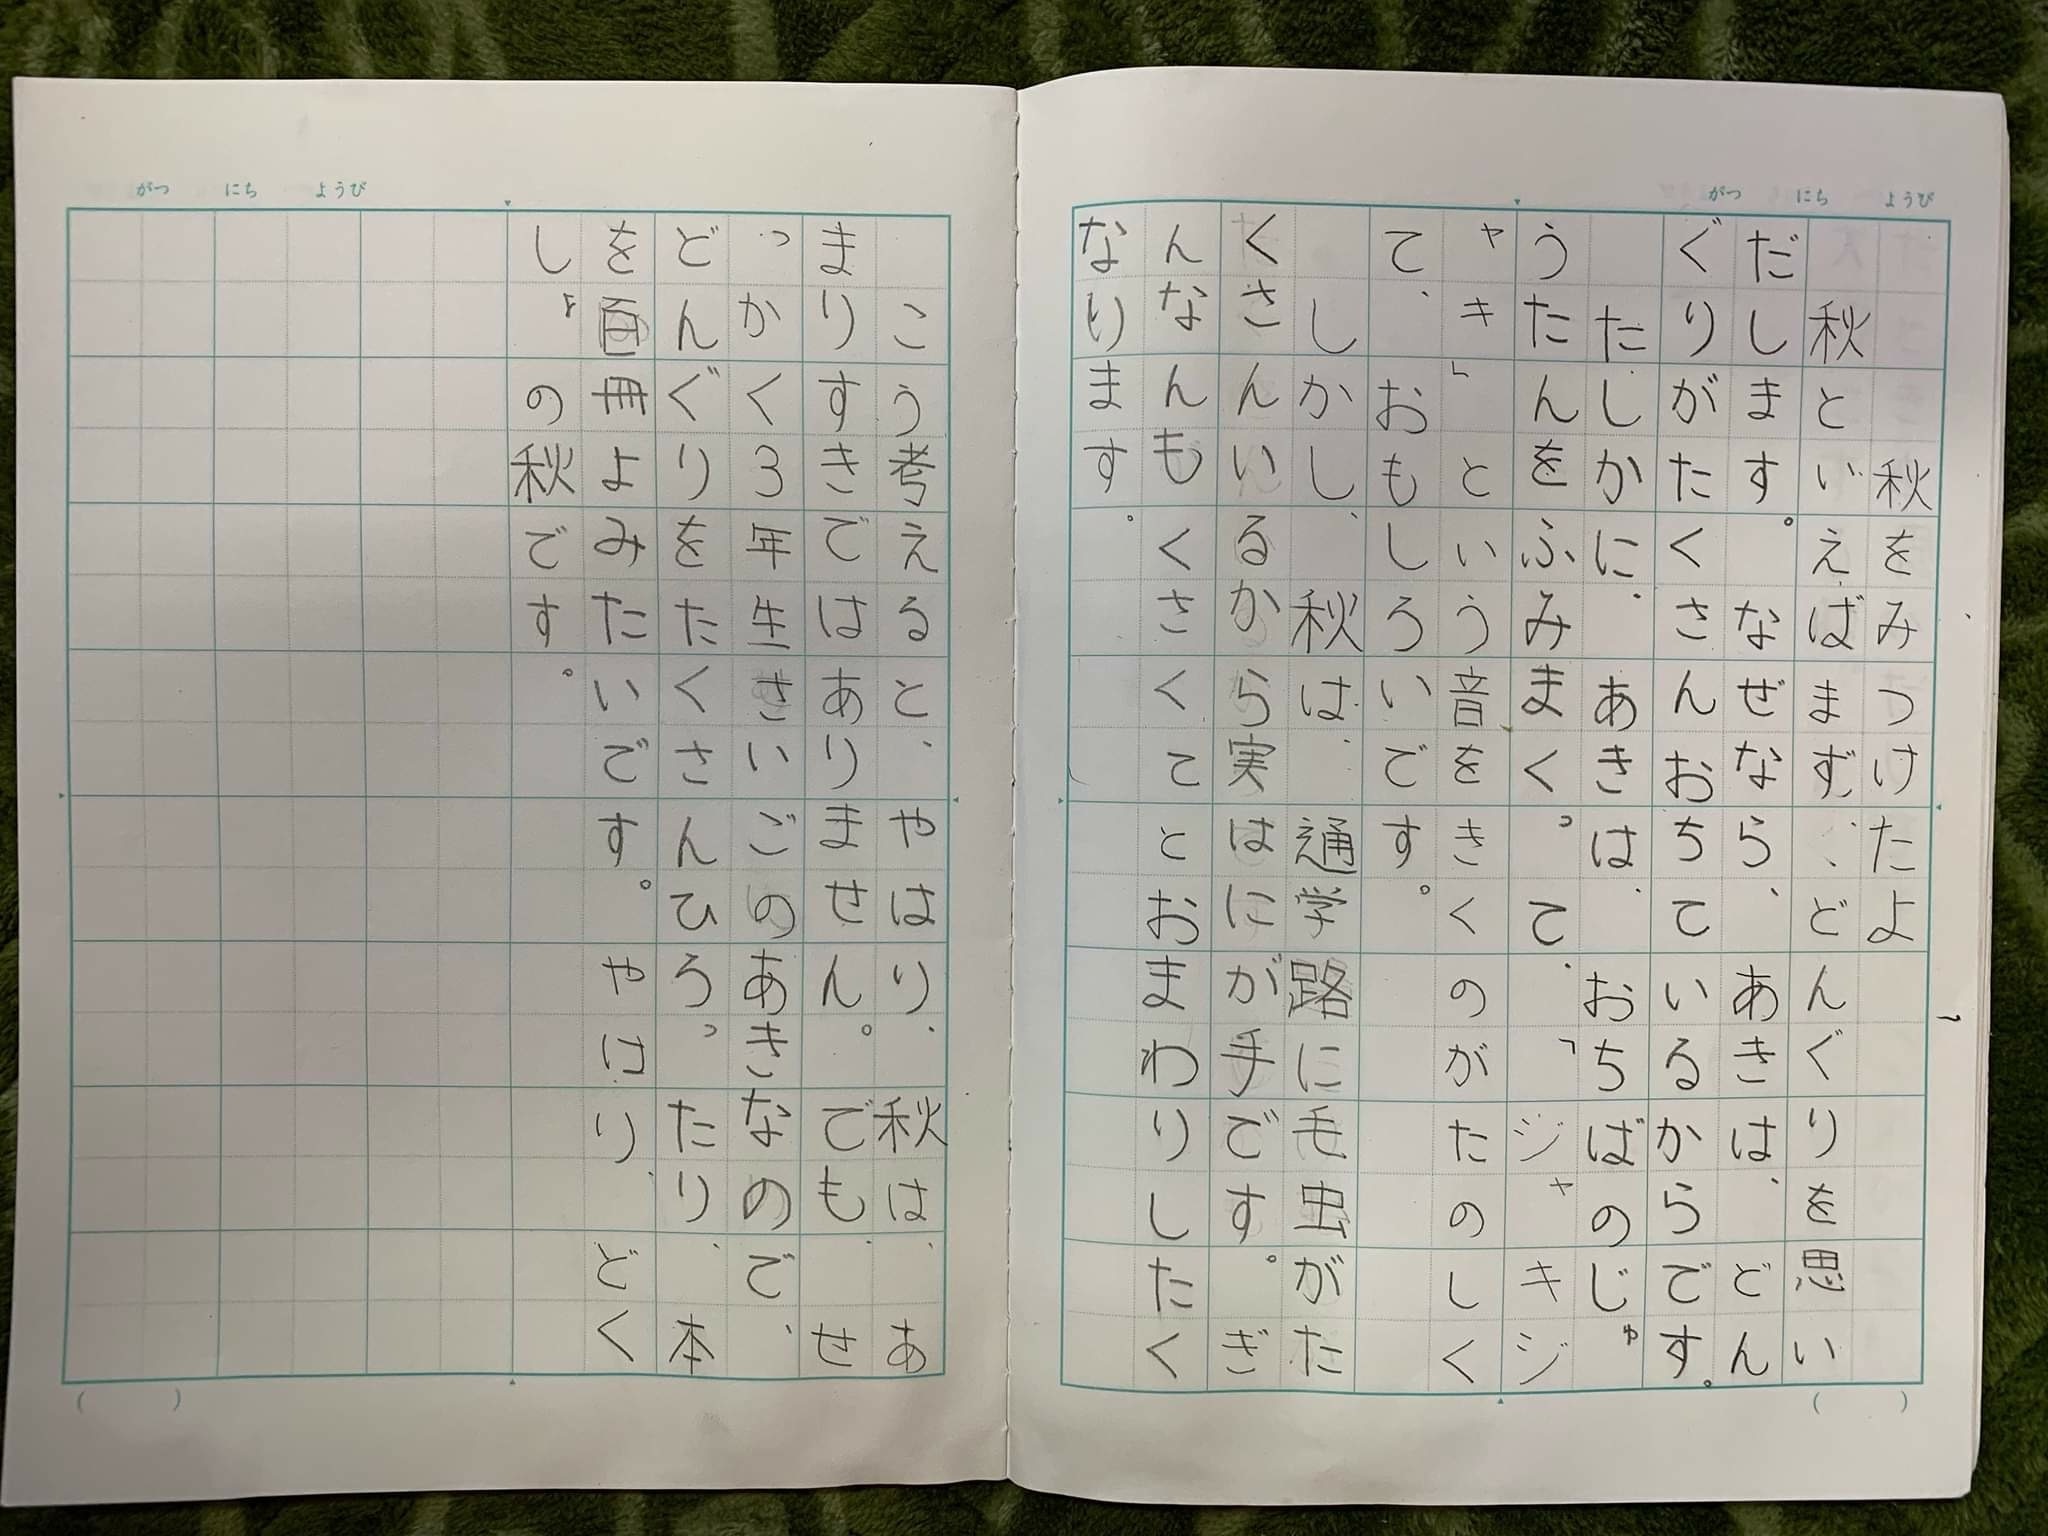 がつ にち ようび
秋をみつけたよ
秋といえばまず、どんぐりを思い
だします。なぜなら、あきは、どん
ぐりがたくさんおちているからです。
たしかに、あきは、おちばのじゅ
うたんをふみまくって、「ジャキジ
ャキ」という音をきくのがたのしく
て、おもしろいです。
しかし、秋は、通学路に毛虫がた
くさんいるから実はにが手です。ぎ
んなんもくさくてとおまわりしたく
なります。
がつ にち ようび
こう考えると、やはり、秋は、あ
まりすきではありません。でも、せ
っかく3年生さいごのあきなので、
どんぐりをたくさんひろったり、本
を百冊よみたいです。やはり、どく
しょの秋です。